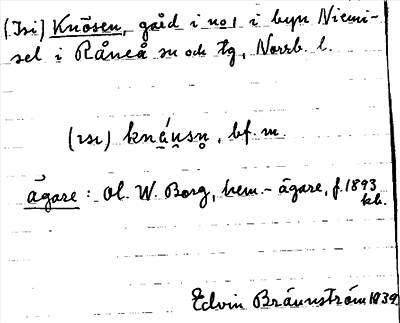 (Isi) Knösen, gård i no 1 i byn Niemi-
sel i Råneå sn och tg, Norrb. l.
(ısı) knäu̯sn̥, bf. m.
ägare: Ol. W. Borg, hem.-ägare, f. 1893
kb.
Edvin Brännström 1939